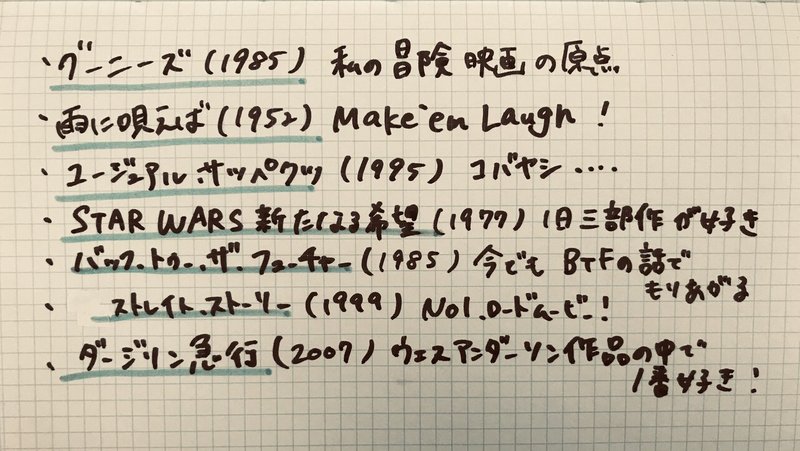 ・グーニーズ(1985) 私の冒険映画の原点
・雨に唄えば(1952) Make'em Laugh!
・ユージュアル.サッペクツ(1995) コバヤシ‥‥
・STAR WARS 新たなる希望(1977) 1日三部作が好き
・バック.トゥー.ザ.フューチャー(1985) 今でも BTFの話で
もりあがる
・ストレイト.ストーリー(1999) NO1.ロードムービー!
・ダージリン急行(2007) ウェスアンダーソン作品の中で
1番好き!